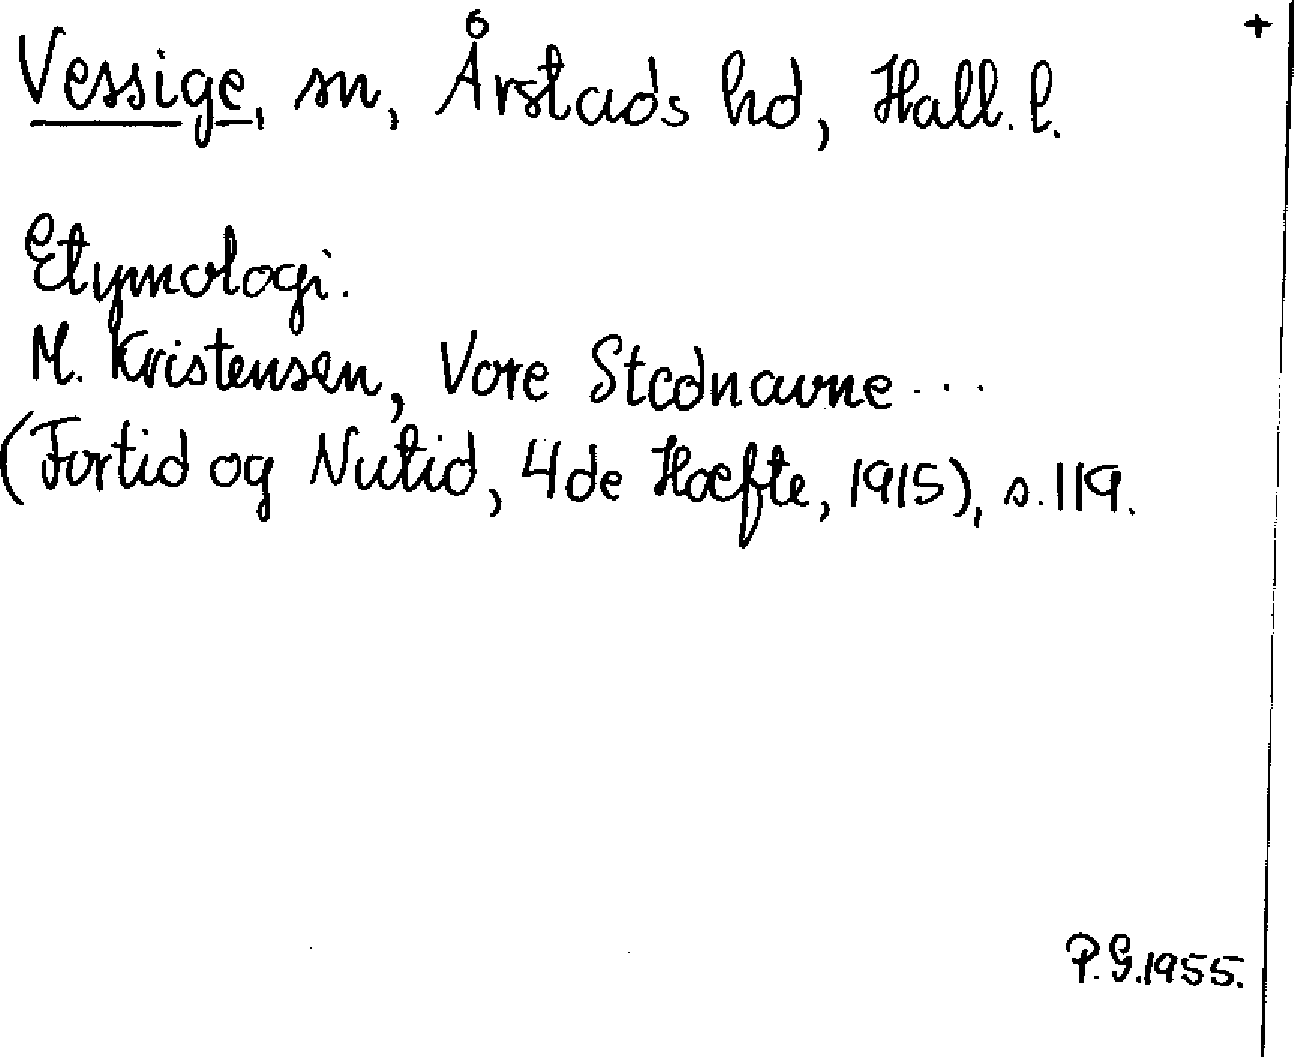 +
Vessige, sn, Årstads hd, Hall. l.
Etymologi.
M. Kristensen, Vore Stednavne ...
(Fortid og Nutid, 4de Hæfte, 1915), s. 119.
P.G. 1955.